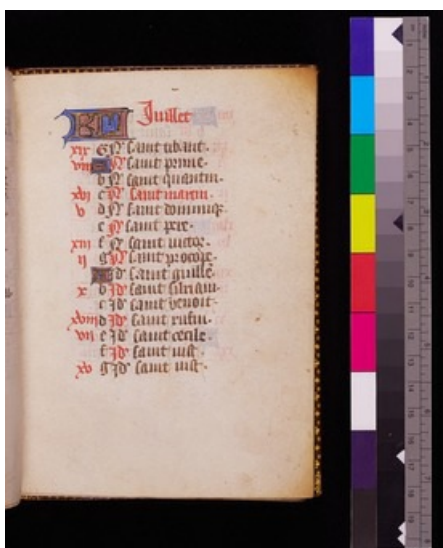 KL Juillet
xix g N saint tibaut.
viii A N saint prime.
b N saint quentin.
xvi c N saint martin.
v d N saint dominiq.
e N saint pere.
xiii f N saint victor.
ii g N saint procope.
A Id saint guille.
x b Id saint
c Id saint benoit.
xviii d Id saint rufin.
vii e Id saint cecile.
f Id saint iust.
xv g Id saint iust.